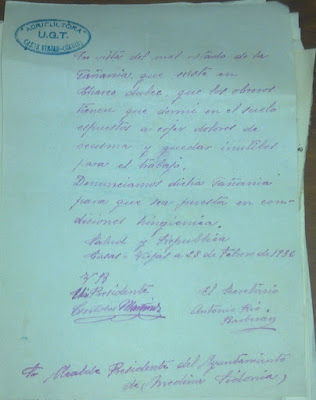 AGRICULTORA
U.G.T.
En vista del mal estado de la
Gañania, que existe en
Charco dulce, que los obreros
tienen que dormir en el suelo
espuestos a cojer dolores de
reuma y quedar inutiles
para el trabajo.
Denunciamos dicha Gañania
para que sea puesta en con-
disiones hingienica.
Salud y Republica
Casas-Viejas a 28 de Febrero de 1936
V B
El Presidente El Secretario
Antonio
Sr Alcalde Presidente del Ayuntamiento
de Medina Sidonia,